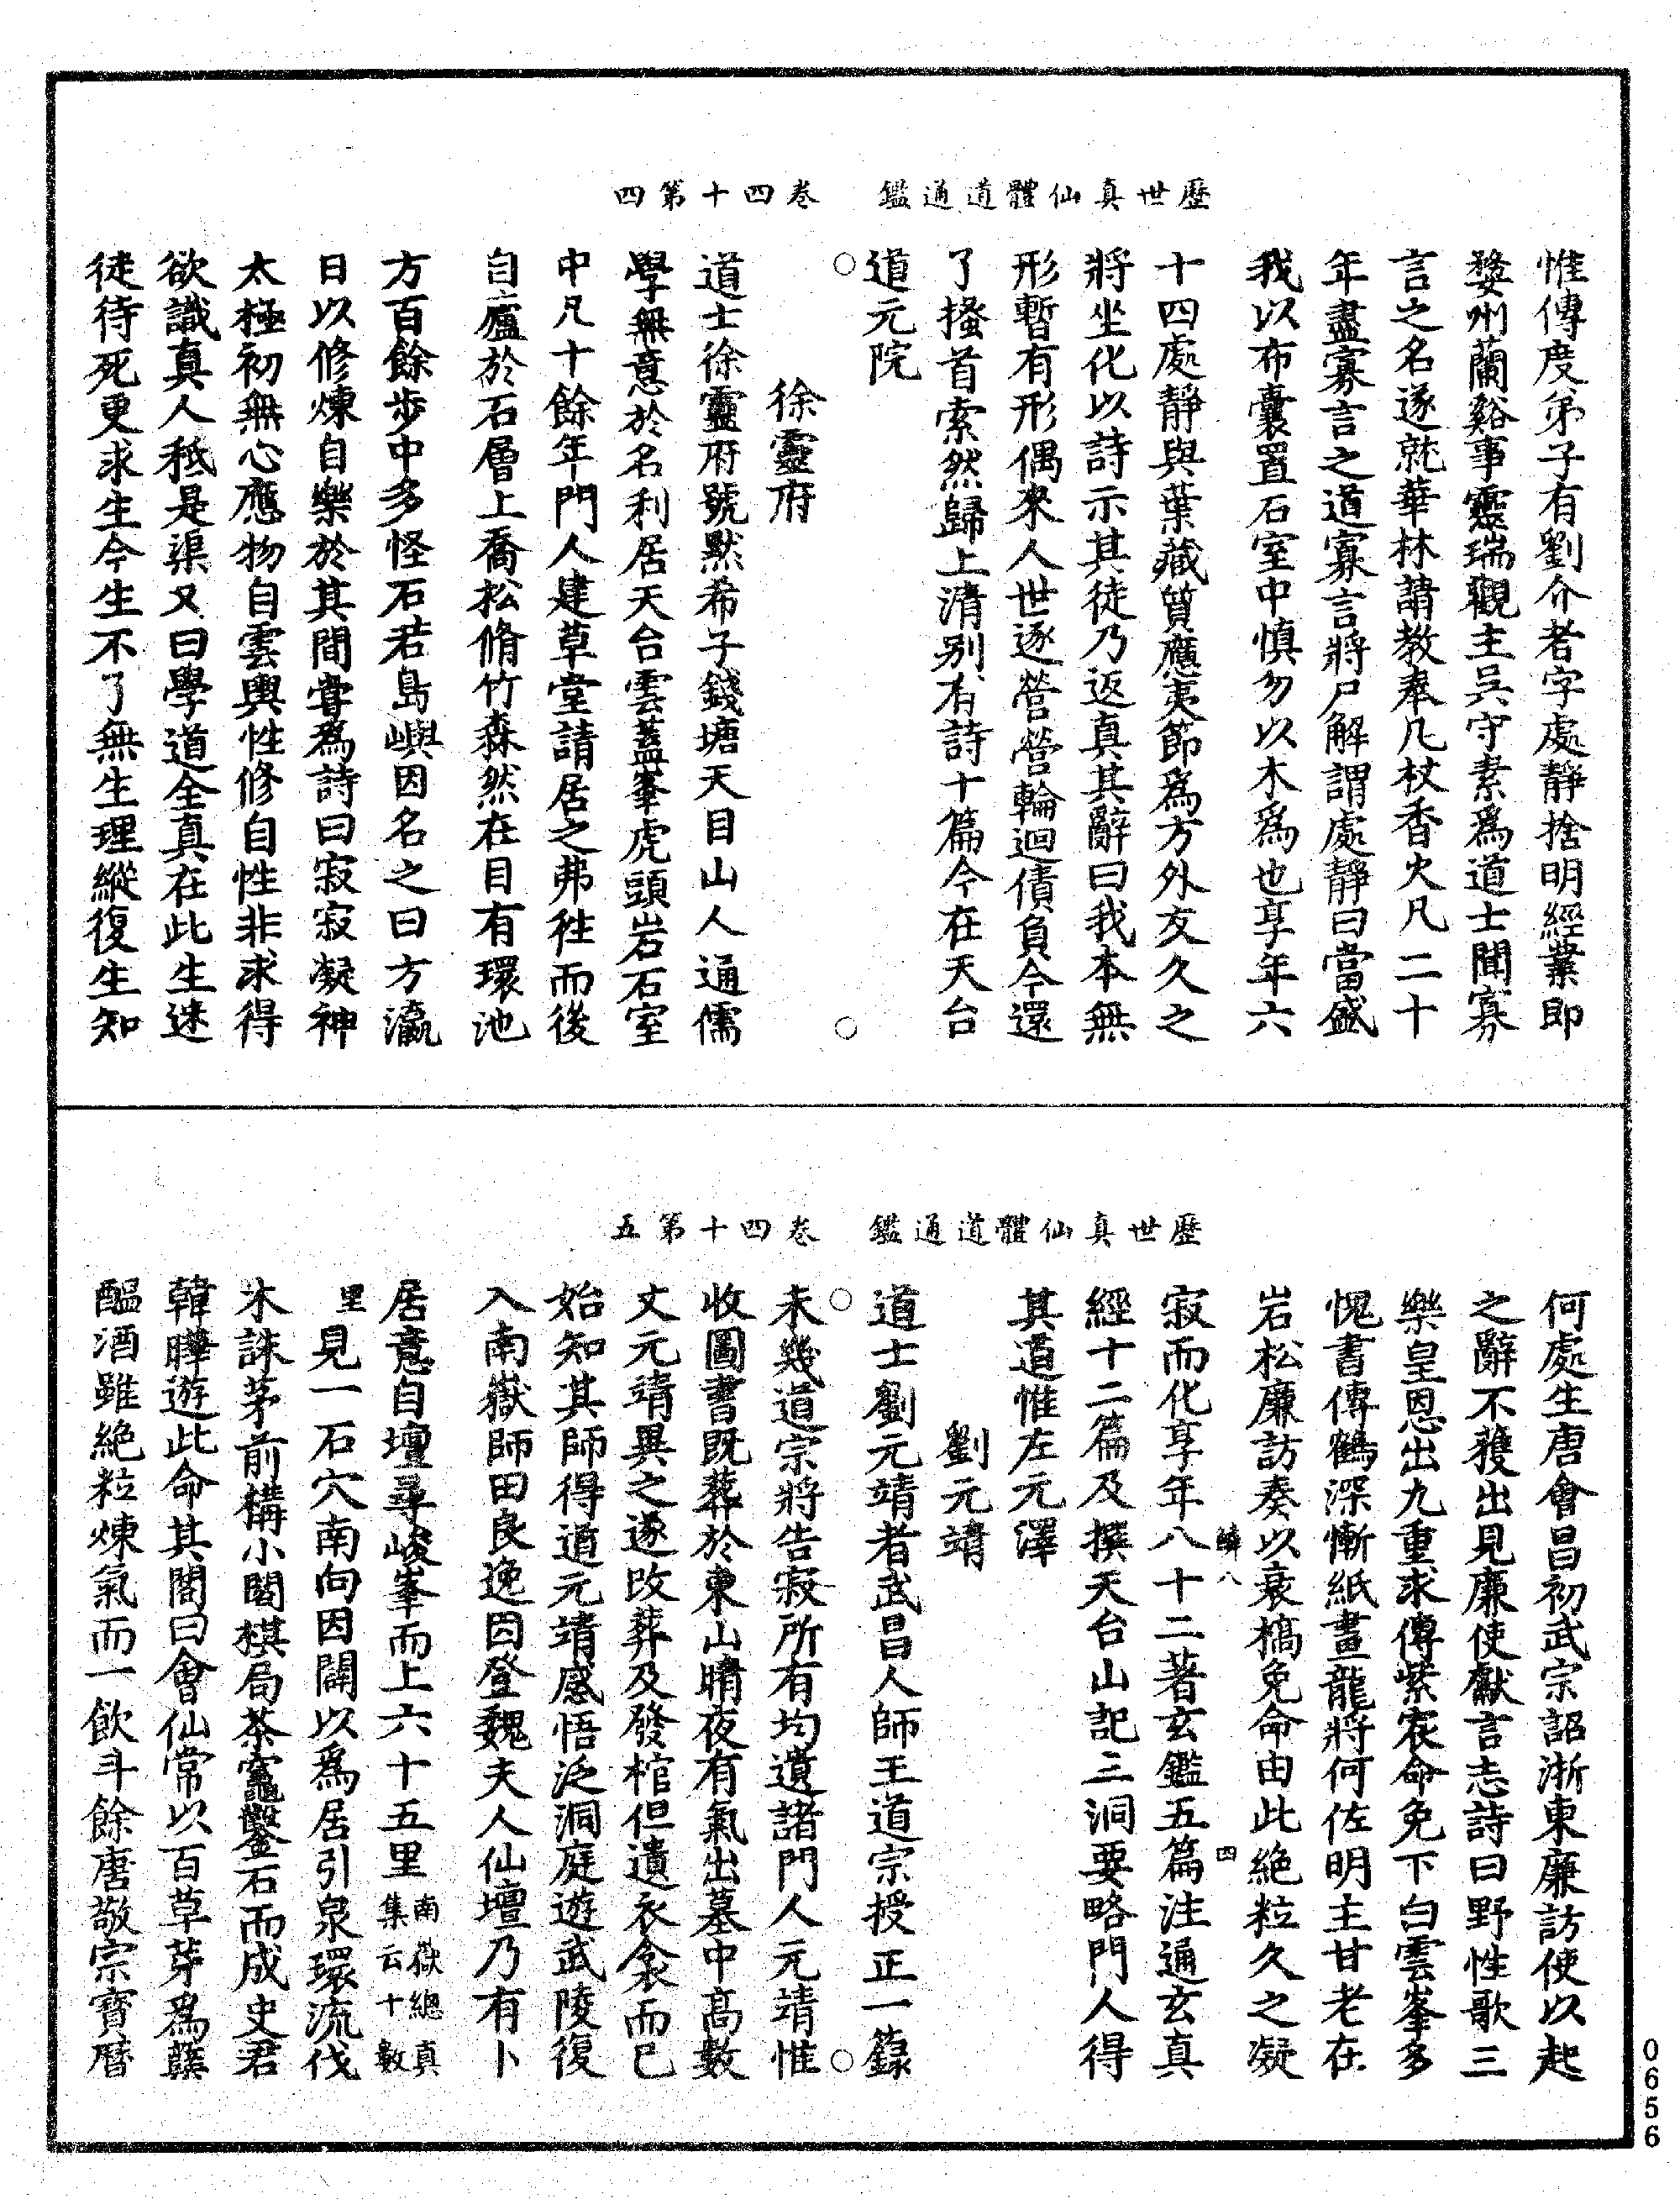 歷世真仙體道通鑑　卷四十第四
惟傳度弟子有劉介者字處靜捨明經業即
婺州蘭谿事靈瑞觀主吳守素爲道士聞寡
言之名遂就華林請教奉几杖香火凡二十
年盡寡言之道寡言將尸解謂處靜曰當盛
我以布囊置石室中慎勿以木爲也享年六
十四處靜與葉藏質應夷節爲方外友久之
將坐化以詩示其徒乃返真其辭曰我本無
形暫有形偶來人世逐營營輪迴債負今還
了搔首索然歸上清别有詩十篇今在天台
道元院
○　○
徐靈府
道士徐靈府號默希子錢塘天目山人通儒
學無意於名利居天台雲蓋峯虎頭岩石室
中凡十餘年門人建草堂請居之弗往而後
自廬於石層上喬松脩竹森然在目有環池
方百餘步中多怪石若島嶼因名之曰方瀛
日以修煉自樂於其間嘗爲詩曰寂寂凝神
太極初無心應物自雲輿性修自性非求得
欲識真人秖是渠又曰學道全真在此生迷
徒待死更求生今生不了無生理縱復生知
歷世真仙體道通鑑　卷四十第五
何處生唐會昌初武宗詔浙東廉訪使以起
之辭不獲出見廉使獻言志詩曰野性歌三
樂皇恩出九重求傳紫宸命免下白雲峯多
愧書傳鶴深慚紙畫龍將何佐明主甘老在
岩松廉訪奏以衰槁免命由此絶粒久之凝
鳞八　四
寂而化享年八十二著玄鑑五篇注通玄真
經十二篇及撰天台山記三洞要略門人得
其道惟左元澤
劉元靖
道士劉元靖者武昌人師王道宗授正一籙
○　○
未幾道宗將告寂所有均遺諸門人元靖惟
收圖書既葬於東山晴夜有氣出墓中高數
丈元靖異之遂改葬及發棺但遺衣衾而已
始知其師得道元靖感悟泛洞庭遊武陵復
入南嶽師田良逸因登魏夫人仙壇乃有卜
居意自壇尋峻峯而上六十五里南嶽總真集云十數
里見一石穴南向因闢以爲居引泉環流伐
木誅茅前構小閣棋局茶竈鑿石而成史君
韓曄遊此命其閣曰會仙常以百草芽爲蘖
醖酒雖絶粒煉氣而一飲斗餘唐敬宗寶曆
0656